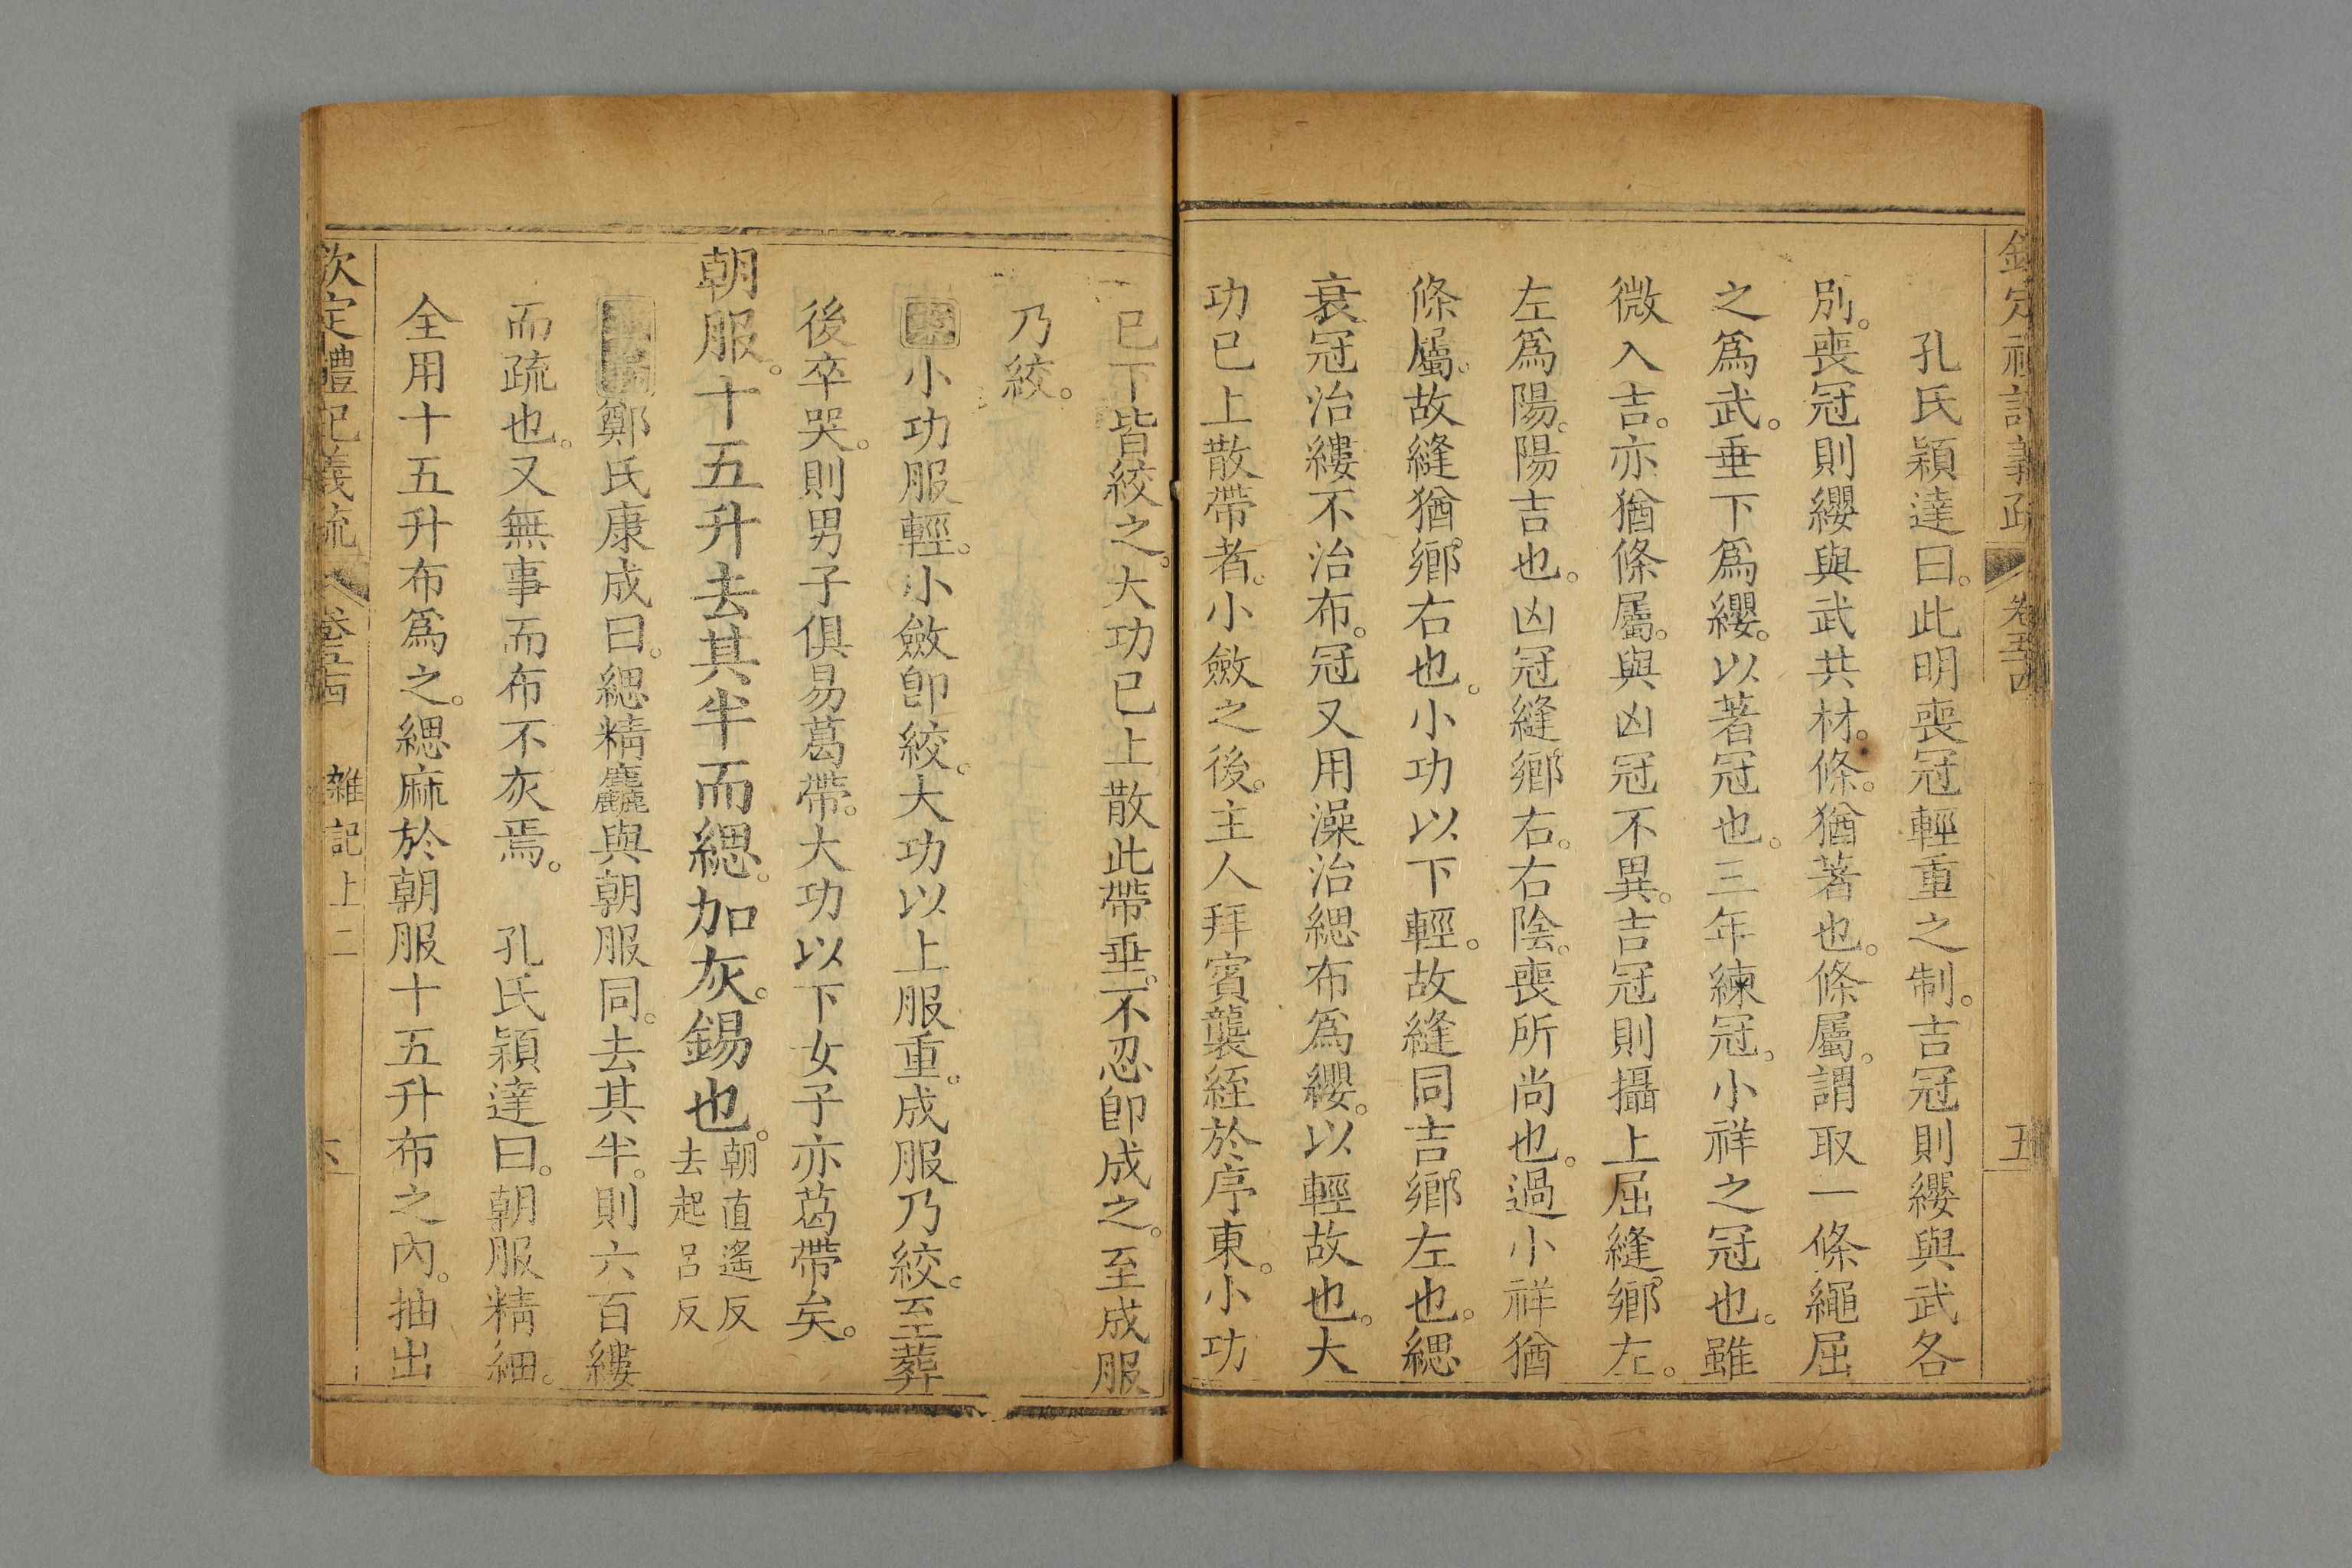 欽定禮記義疏 卷五十四 五
孔氏穎達曰。此明喪冠輕重之制。吉冠則纓與武各
別。喪冠則纓與武共材。條。猶著也。條屬。謂取一條繩屈
之爲武。垂下爲纓。以著冠也。三年練冠。小祥之冠也。雖
微入吉。亦猶條屬。與凶冠不異。吉冠則攝上屈縫鄉左。
左爲陽。陽吉也。凶冠縫鄉右。右陰。喪所尚也。過小祥猶
條屬。故縫猶鄉右也。小功以下輕。故縫同吉鄉左也。緦
衰冠治縷不治布。冠又用澡治緦布爲纓。以輕故也。大
功已上散帶者。小斂之後。主人拜賓襲絰於序東。小功
已下皆絞之。大功已上散此帶垂。不忍卽成之。至成服
乃絞。
案小功服輕。小斂卽絞。大功以上服重。成服乃絞。至葬
後卒哭。則男子俱易葛帶。大功以下女子亦葛帶矣。
朝服。十五升去其半而緦。加灰。錫也。朝直遙反
去起呂反
鄭氏康成曰。緦精麤與朝服同。去其半。則六百縷
而疏也。又無事而布不灰焉。 孔氏穎達曰。朝服精細。
全用十五升布爲之。緦麻於朝服十五升布之內。抽出
欽定禮記義疏 卷五十四 雜記上二 六